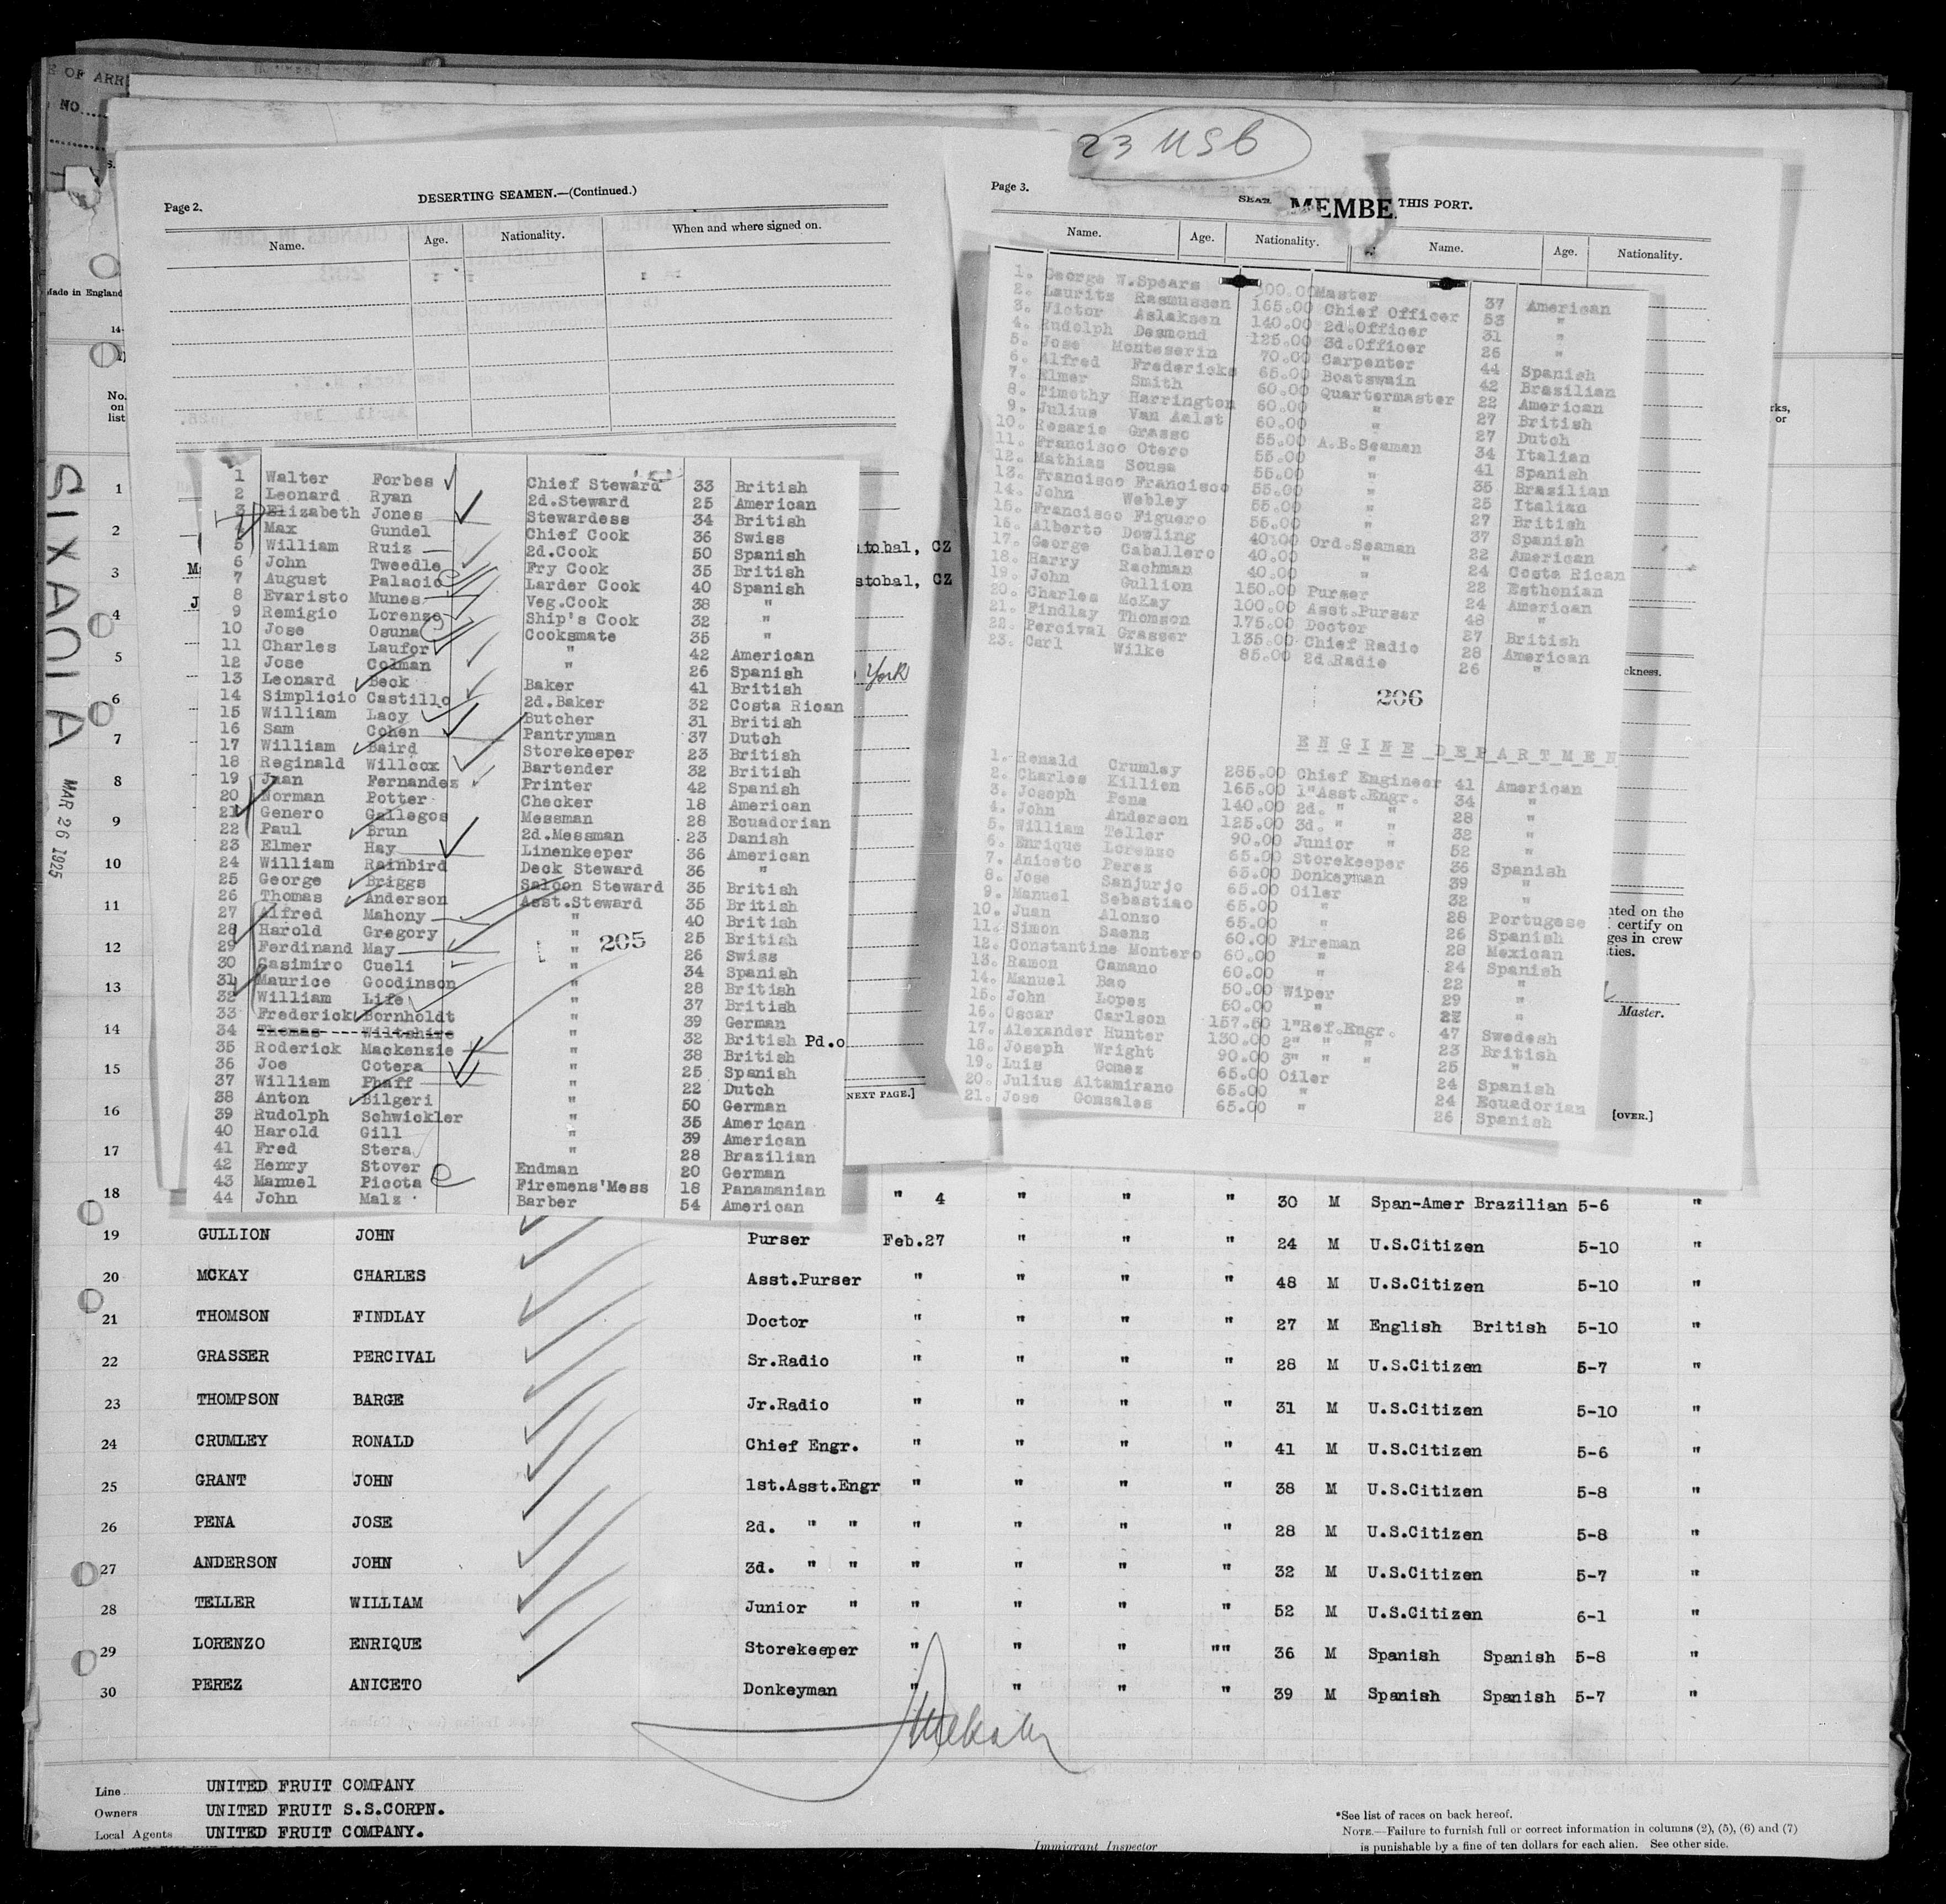 23 USB
E OF ARR
NO
Page 2.
DESERTING SEAMEN.—(Continued.)
Name. Age. Nationality. When and where signed on.
Made in England
No. on list
SIXAOLA
MAR 26 1925
1 Walter Forbes Chief Steward 33 British
2 Leonard Ryan 2d.Steward 25 American
3 Elizabeth Jones Stewardess 34 British
4 Max Gundel Chief Cook 36 Swiss
5 William Ruiz 2d.Cook 50 Spanish
6 John Tweedle Fry Cook 35 British
7 August Palacio Larder Cook 40 Spanish
8 Evaristo Munes Veg.Cook 38 "
9 Remigio Lorenzo Ship's Cook 32 "
10 Jose Osuna Cooksmate 35 "
11 Charles Laufor " 42 American
12 Jose Colman " 26 Spanish
13 Leonard Beck Baker 41 British
14 Simplicio Castillo 2d.Baker 32 Costa Rican
15 William Lacy Butcher 31 British
16 Sam Cohen Pantryman 37 Dutch
17 William Baird Storekeeper 23 British
18 Reginald Willcox Bartender 32 British
19 Juan Fernandez Printer 42 Spanish
20 Norman Potter Checker 18 American
21 Genero Gallegos Messman 28 Ecuadorian
22 Paul Brun 2d.Messman 23 Danish
23 Elmer Hay Linenkeeper 36 American
24 William Rainbird Deck Steward 36 "
25 George Briggs Saloon Steward 35 British
26 Thomas Anderson Asst.Steward 35 British
27 Alfred Mahony " 40 British
28 Harold Gregory " 25 British
29 Ferdinand May " 26 Swiss
30 Casimiro Cueli " 34 Spanish
31 Maurice Goodinson " 28 British
32 William Life " 37 British
33 Frederick Bornholdt " 39 German
34 Thomas Wiltshire " 32 British Pd.o
35 Roderick Mackenzie " 38 British
36 Joe Cotera " 25 Spanish
37 William Phaff " 22 Dutch
38 Anton Bilgeri " 50 German
39 Rudolph Schwickler " 35 American
40 Harold Gill " 39 American
41 Fred Stera " 28 Brazilian
42 Henry Stover Endman 20 German
43 Manuel Picota Firemens'Mess 18 Panamanian
44 John Malz Barber 54 American
205
stobal, CZ
York
NEXT PAGE.]
Page 3.
MEMBE THIS PORT.
Name. Age. Nationality. Name. Age. Nationality.
1. George W.Spears 300.00 Master 37 American
2. Lauritz Rasmussen 165.00 Chief Officer 53 "
3. Victor Aslaksen 140.00 2d.Officer 31 "
4. Rudolph Desmond 125.00 3d.Officer 26 "
5. Jose Monteserin 70.00 Carpenter 44 Spanish
6. Alfred Fredericks 65.00 Boatswain 42 Brazilian
7. Elmer Smith 60.00 Quartermaster 22 American
8. Timothy Harrington 60.00 " 27 British
9. Julius Van Aalst 60.00 " 27 Dutch
10. Rosario Grasso 55.00 A.B.Seaman 34 Italian
11. Francisco Otero 55.00 " 41 Spanish
12. Mathias Sousa 55.00 " 35 Brazilian
13. Francisco Francisco 55.00 " 25 Italian
14. John Webley 55.00 " 27 British
15. Francisco Figuero 55.00 " 37 Spanish
16. Alberto Dowling 40.00 Ord.Seaman 22 American
17. George Caballero 40.00 " 24 Costa Rican
18. Harry Rachman 40.00 " 22 Esthonian
19. John Gullion 150.00 Purser 24 American
20. Charles McKay 100.00 Asst.Purser 48 "
21. Findlay Thomson 175.00 Doctor 27 British
22. Percival Grasser 135.00 Chief Radio 28 American
23. Carl Wilke 85.00 2d.Radio 26 "
206
ENGINE DEPARTMEN
1. Renald Crumley 285.00 Chief Engineer 41 American
2. Charles Killien 165.00 1"Asst.Engr. 34 "
3. Joseph Pena 140.00 2d. " " 28 "
4. John Anderson 125.00 3d. " " 32 "
5. William Teller 90.00 Junior " 52 "
6. Enrique Lorenzo 65.00 Storekeeper 36 Spanish
7. Aniceto Perez 65.00 Donkeyman 39 "
8. Jose Sanjurjo 65.00 Oiler 32 "
9. Manuel Sebastiao 65.00 " 28 Portugese
10. Juan Alonzo 65.00 " 26 Spanish
11. Simon Saenz 60.00 Fireman 28 Mexican
12. Constantine Montero 60.00 " 24 Spanish
13. Ramon Camano 60.00 " 22 "
14. Manuel Bao 50.00 Wiper 29 "
15. John Lopez 50.00 " 22 "
16. Oscar Carlson 157.50 1"Ref.Engr. 47 Swedesh
17. Alexander Hunter 130.00 2" " " 23 British
18. Joseph Wright 90.00 3" " " 25 "
19. Luis Gomez 65.00 Oiler 24 Spanish
20. Julius Altamirano 65.00 " 24 Ecuadorian
21. Jose Gonsales 65.00 " 26 Spanish
rks, or
ckness.
nted on the
certify on
ges in crew
ties.
Master.
[OVER.]
1
2
3
4
5
6
7
8
9
10
11
12
13
14
15
16
17
18 " 4 " " " 30 M Span-Amer Brazilian 5-6 "
19 GULLION JOHN Purser Feb.27 " " " 24 M U.S.Citizen 5-10 "
20 MCKAY CHARLES Asst.Purser " " " " 48 M U.S.Citizen 5-10 "
21 THOMSON FINDLAY Doctor " " " " 27 M English British 5-10 "
22 GRASSER PERCIVAL Sr.Radio " " " " 28 M U.S.Citizen 5-7 "
23 THOMPSON BARGE Jr.Radio " " " " 31 M U.S.Citizen 5-10 "
24 CRUMLEY RONALD Chief Engr. " " " " 41 M U.S.Citizen 5-6 "
25 GRANT JOHN 1st.Asst.Engr " " " " 38 M U.S.Citizen 5-8 "
26 PENA JOSE 2d. " " " " " " 28 M U.S.Citizen 5-8 "
27 ANDERSON JOHN 3d. " " " " " " 32 M U.S.Citizen 5-7 "
28 TELLER WILLIAM Junior " " " " " 52 M U.S.Citizen 6-1 "
29 LORENZO ENRIQUE Storekeeper " " " "" 36 M Spanish Spanish 5-8 "
30 PEREZ ANICETO Donkeyman " " " " 39 M Spanish Spanish 5-7 "
Line UNITED FRUIT COMPANY
Owners UNITED FRUIT S.S.CORPN.
Local Agents UNITED FRUIT COMPANY.
Immigrant Inspector
*See list of races on back hereof.
NOTE.—Failure to furnish full or correct information in columns (2), (5), (6) and (7)
is punishable by a fine of ten dollars for each alien. See other side.